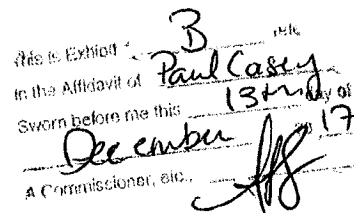 This is Exhibit " B
in the Affidavit of Paul Casey
Sworn before me this 13th day of
December 17
A Commissioner, etc.,